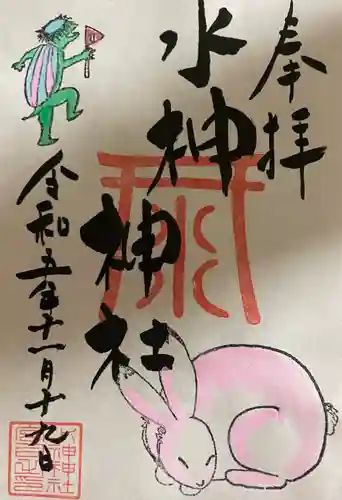 奉拝
水神
神社
令和五年十一月十九日
水